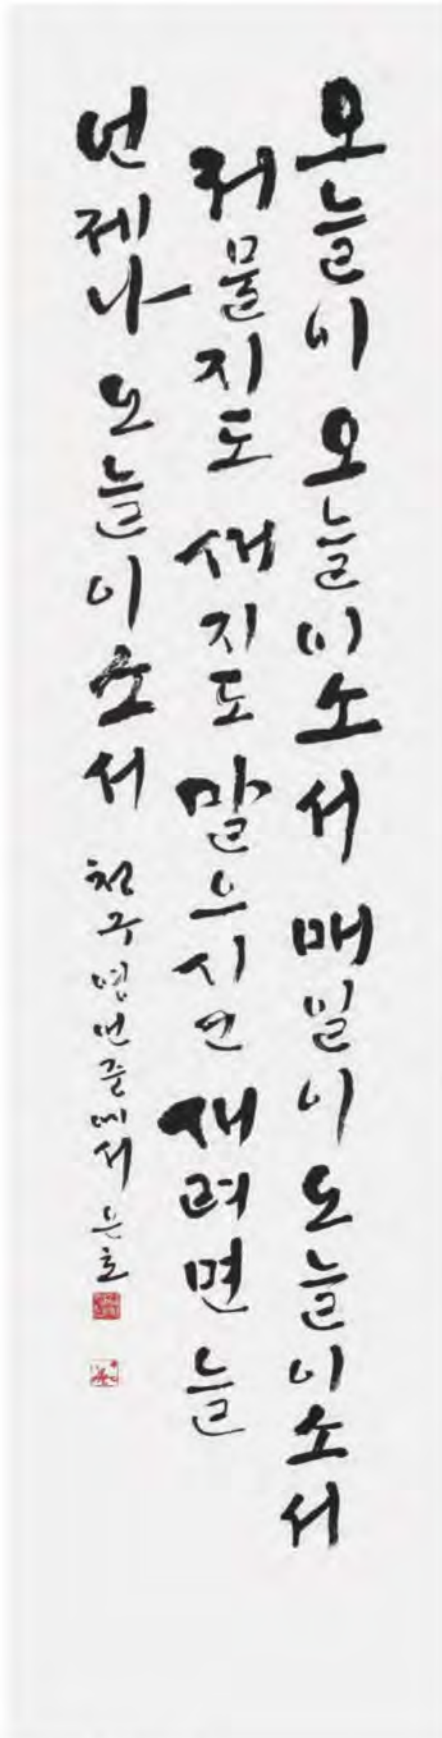 오늘이 오늘이소서 매일이 오늘이소서
저물지도 새지도 말으시언 새려면 늘
언제나 오늘이소서 청구영언 중에서 은호